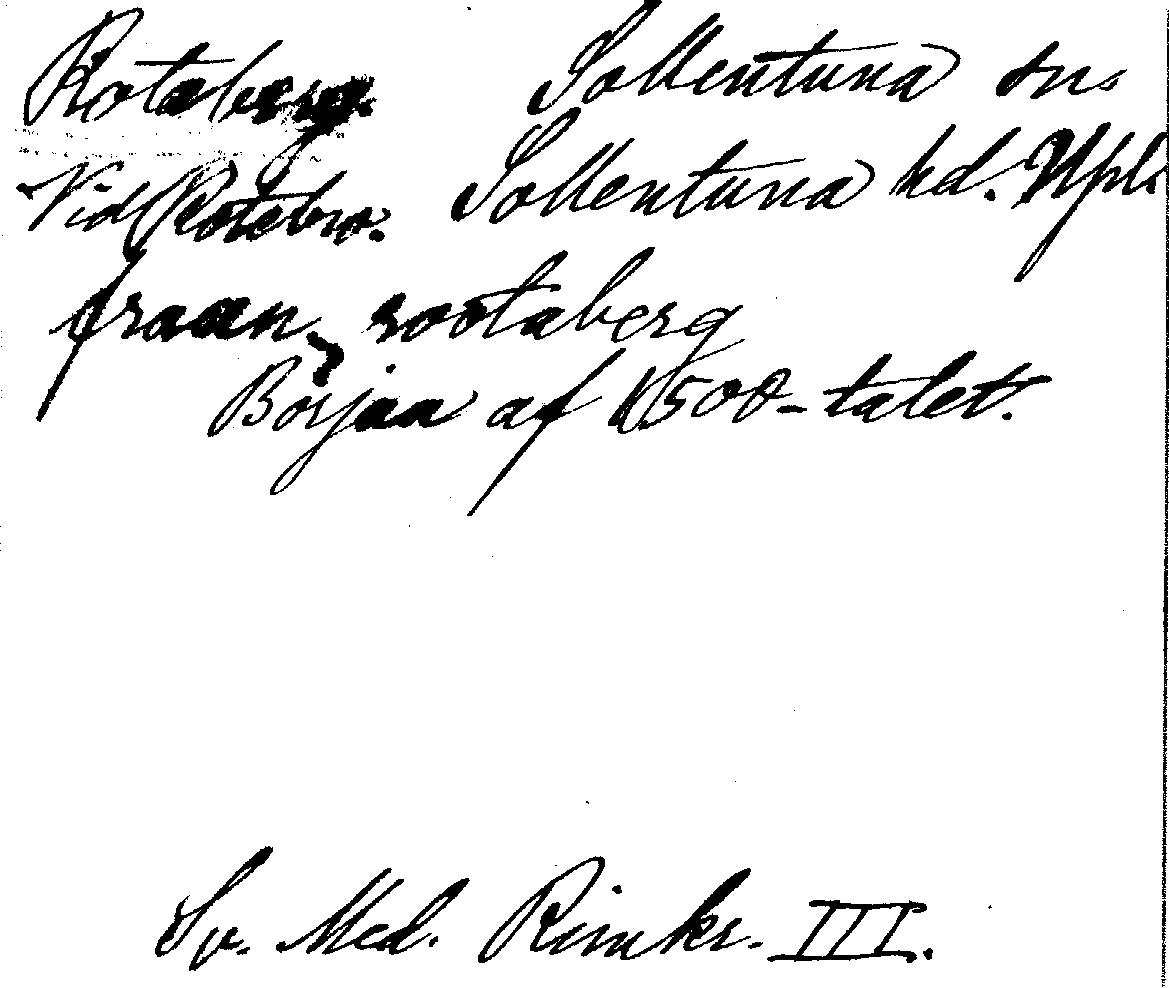 Rotaberg. Sollentuna sn.
Vid Rotebro. Sollentuna hd. Upl.
fraan rootaberg
Början af 1500-talet.
Sv. Med. Rimkr. III.